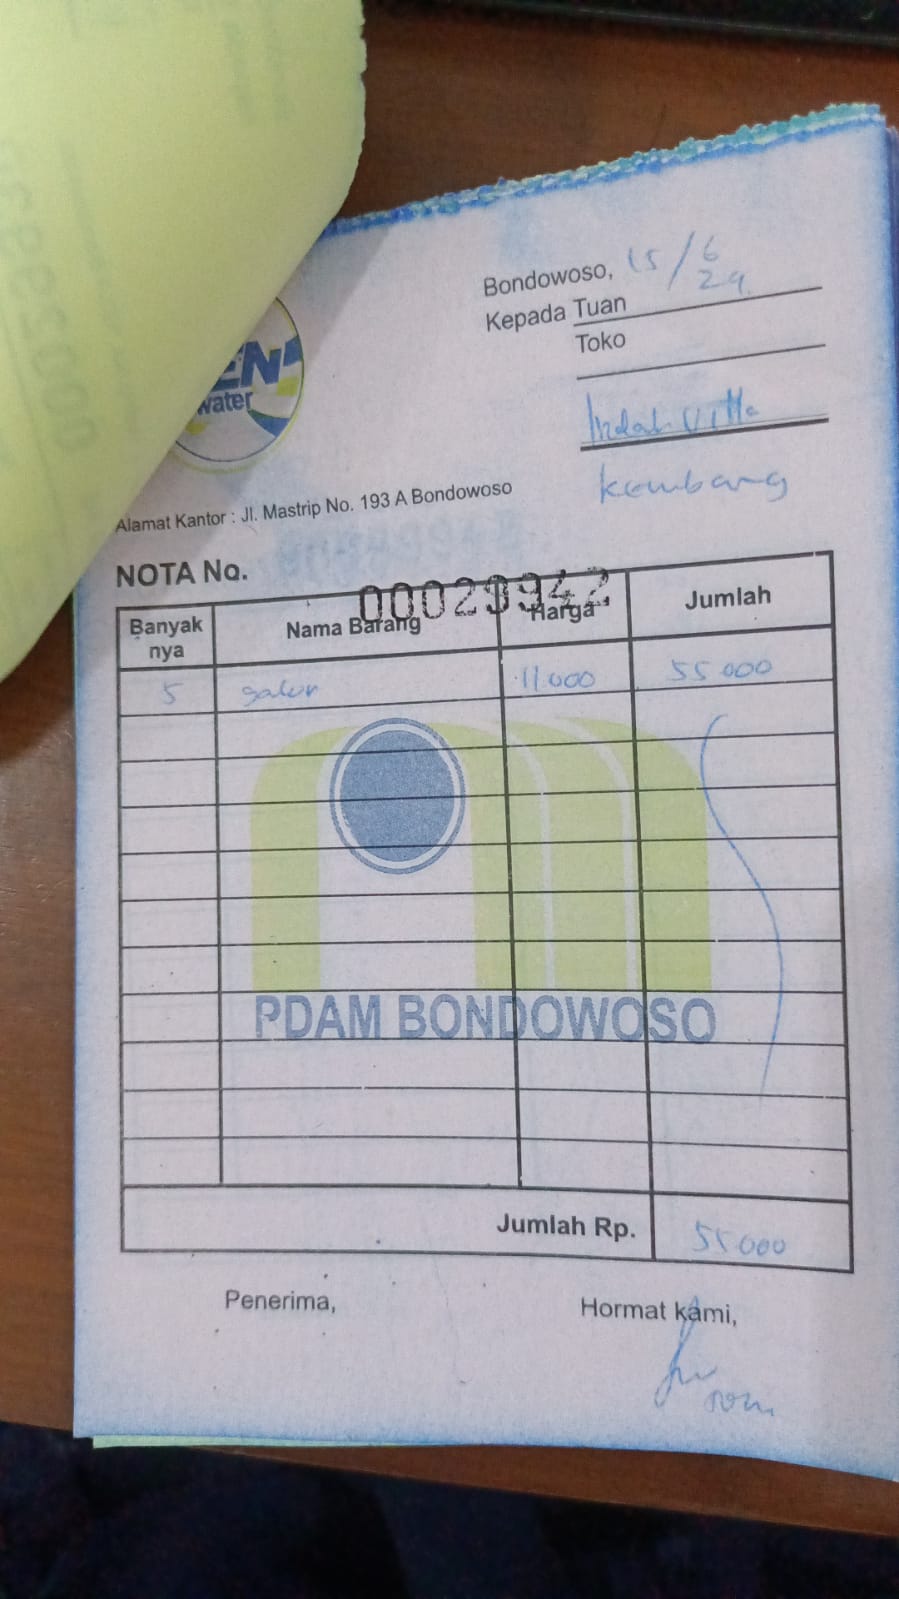 EN
water
Bondowoso, 15/6 24
Kepada Tuan
Toko
Indah Vitta
Kembang
Alamat Kantor : Jl. Mastrip No. 193 A Bondowoso
NOTA No.
00029942
Banyak nya Nama Barang Harga Jumlah
5 galon 11.000 55 000
PDAM BONDOWOSO
Jumlah Rp. 55 000
Penerima, Hormat kami,